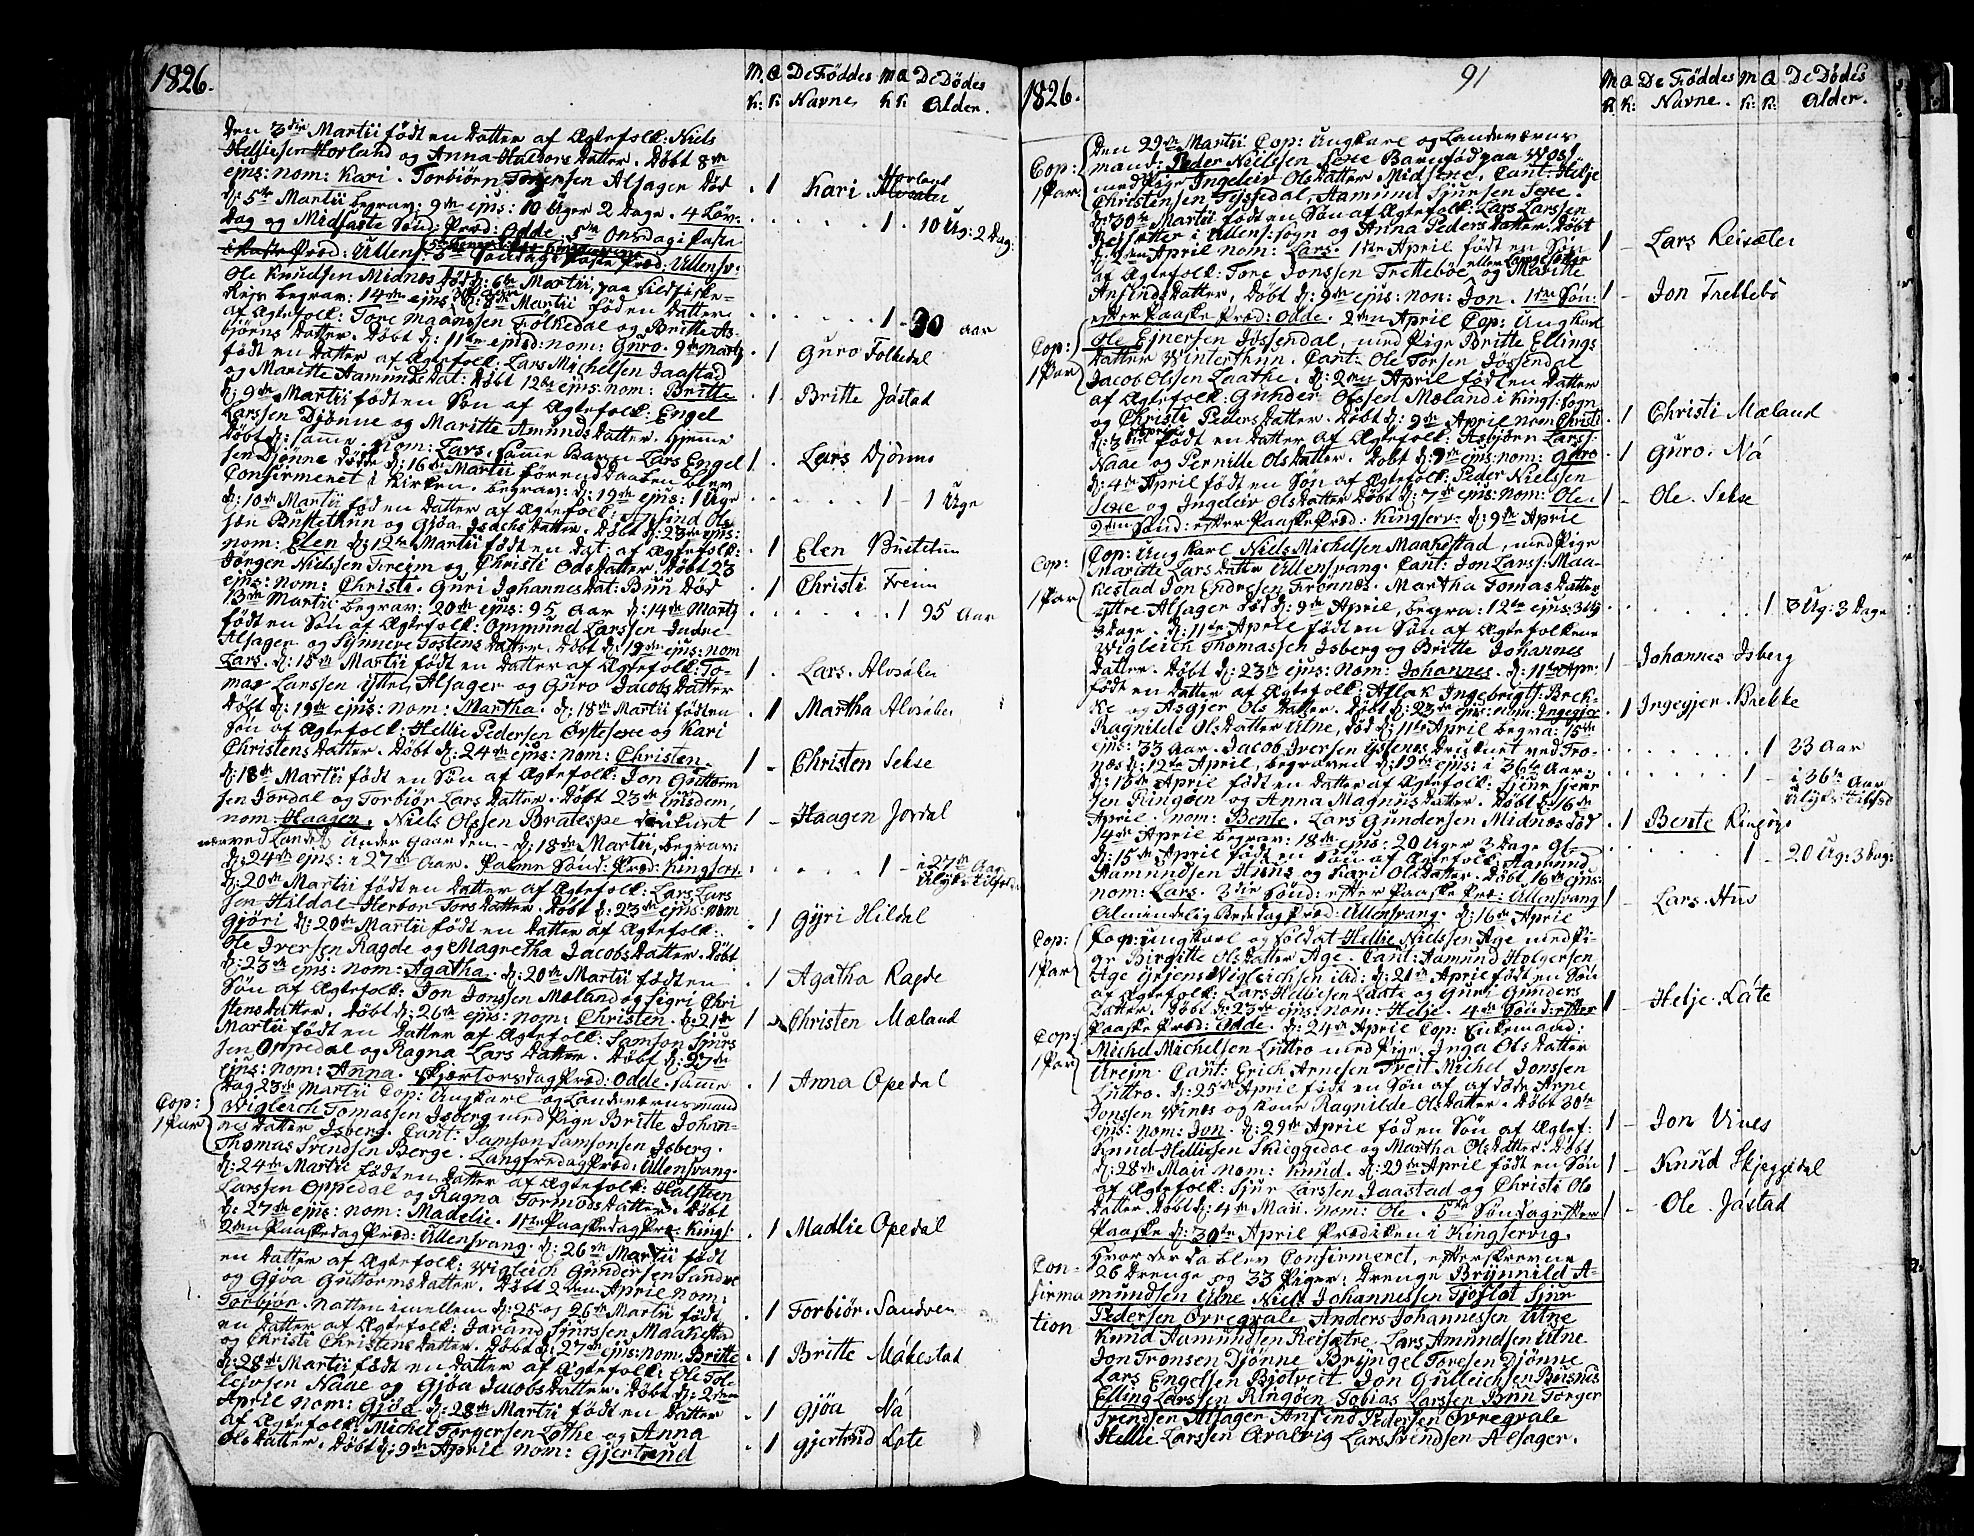 1826.
M. Q. De Føddes M Q De Dødes
k: k. Navne k k. Alder.
Den 3die Martii født en Datter af Ægtefolk: Niels
Helliesen Horland og Anna Halvors Datter. Døbt 8de
ejus: nom: Kari. Torbiørn Torgersen Alsager Død
d: 5te Martii begrav: 9de ejus: 10 Uger 2 Dage. 4 Løv-
dag og Midfaste Sønd: Præd: Odde. 5te Onsdag i Faste
Præd: Ullens: 5te Søndag i Faste Præd: Ullensv:
Ole Knudsen Midnes Død d: 6te Martii, paa Sildfiske-
Rejs begrav: 14de ejus d: 8de Martii føden Datter
af Ægtefolk: Tore Maansen Folkedal og Britte As-
bjørns Datter. Døbt d: 11te ejusd: nom: Guro. 9de Martij
født en Datter af Ægtefolk: Lars Michelsen Jaastad
og Maritte Aamunds Dat: Døbt 12te ejus: nom: Britte
d: 9de Martii født en Søn af Ægtefolk: Engel
Larssen Djønne og Maritte Amunds Datter. Hjemme
Døbt d: samme. Nom: Lars. Samme Barn Lars Engel
sen Djønne Døde d: 16de Martii førend Daaben blev
Confirmeret i Kirken. begrav: d: 19de ejus: 1 Uge
d: 10de Martii føden Datter af Ægtefolk: Arfind Ols
sen Bustethun og Gjøa Isachs Datter. Døbt d: 23de ejus:
nom: Elen d: 12te Martii født en Dat: af Ægtefolk:
Jørgen Nielssen Freim og Christi Ods Datter. Døbt 23
ejus: nom: Christi. Guri Johannes Dat: Buu Død
13de Martii begrav: 20de ejus: 95 Aar d: 14de Martij
født en Søn af Ægtefolk: Ommund Larssen Indre-
Alsager og Synneve Tostens Datter. Døbt d: 19de ejus: nom
Lars. d: 15de Martii født en Datter af Ægtefolk: To-
mas Larssen Yttre Alsager og Guro Jacobs Datter
Døbt d: 19de ejus: nom: Martha. d: 18de Martii føden
Søn af Ægtefolk: Hellie Pedersen Ørstesexe og Kari
Christens Datter. Døbt d: 24de ejus: nom: Christen.
d: 18de Martii født en Søn af Ægtefolk: Jon Guttorm
sen Jordal og Torbiør Lars Datter. Døbt 23de Eiusdem,
nom: Haagen. Niels Olssen Bratespe Druknet
nærved Landet under Gaarden. d: 18de Martii, begrav:
d: 24de ejus: i 27de Aar. Palme Sønd: Præd: Kingserv:
d: 20de Martii født en Datter af Ægtefolk: Lars Lars
sen Hildal Herbor Tors Datter. Døbt d: 23de ejus: nom
Gjøri d: 20de Martii født en Datter af Ægtefolk:
Ole Iversen Ragde og Magretha Jacobs Datter. Døbt
d: 23de ejus: nom: Agatha. d: 20de Martii føden
Søn af Ægtefolk: Jon Jonssen Mæland og Sigri Chri
stens Datter. Døbt d: 26de ejus: nom: Christen. d: 21de
Martii født en Datter af Ægtefolk: Samson Sjurs
sen Oppedal og Ragna Lars Datter. Døbt d: 27de
ejus: nom: Anna. Skjærtorsdag Præd: Odde. Samme
Dag 23de Martii Cop: Ungkarl og Landeværnsmand
Cop: 1 Par
Wigleich Tomassen Isberg med Pige Britte Johan-
nes Datter Isberg. Caut: Samson Samsonsen Isberg.
Thomas Svendsen Berge. Langfredag Præd: Ullensvang.
d: 24de Martii født en Datter af Ægtefolk: Halsteen
Larssen Oppedal og Ragna Tormods Datter. Døbt
d: 27de ejus: nom: Madelie. 1ste Paaskedag Præ: Kings:
2den Paaskedag Præd: Ullensvang. d: 26de Martii født
en Datter af Ægtefolk: Wigleich Gundersen Sandve
og Gjøa Guttorms Datter. Døbt 2den April nom:
Torbjør. Natten imellem d: 25 og 26de Martii født
en Datter af Ægtefolk: Jarand Sjurssen Maakestad
og Christi Christens Datter. Døbt d: 27de ejus: nom. Britte
d: 28de Martii født en Datter af Ægtefolk: Ole Tole
lejvsen Naae og Gjøa Jacobs Datter. Døbt d: 2den
April nom: Gjøa d: 28de Martii født en Datter
af Ægtefolk: Michel Torgersen Lothe og Anna
Ols Datter. Døbt d: 9de April nom: Gjertrud
1 Kari Horland
1 10 Ug: 2 Dag:
1 30 aar
1 Guro Folkedal
1 Britte Jåstad
1 Lars Djønne
1 1 Uge
1 Elen Bustetun
1 Christi Freim
1 95 Aar
1 Lars Alvsåker
1 Martha Alvsåker
1 Christen Sekse
1 Haagen Jordal
1 i 27de Aar Ulyks: Tilfæ
1 Gyri Hildal
1 Agatha Ragde
1 Christen Mæland
1 Anna Opedal
1 Madlie Opedal
1 Torbiør Sandven
1 Britte Måkestad
1 Gjøa Nå
1 Gjertrud Låte
1826.
91
M Q De Føddes M Q. De Dødes
k. k: Navne. k: k. Alder.
Den 29de Martii Cop: Ungkarl og Landeværns
Cop: 1 Par
mand: Peder Nielssen Sexe Barnefød paa Woss
med Pige Ingeleiv Ols Datter Midsexe. Caut: Helje
Christensen Tyssedal, Aamund Sjursen Sexe.
d: 30te Martii født en Søn af Ægtefolk: Lars Larssen
Reisæter i Ullens: sogn og Anna Peders Datter. Døbt
d: 2den April nom: Lars. 1ste April født en Søn
af Ægtefolk: Tore Jonssen Trettebøe og Maritte
Arfinds Datter, Døbt d: 9de ejus: nom: Jon. 1ste Søn:
efter Paaske Præd: Odde. 2den April Cop: Ungkarl
Cop: 1 Par
Ole Ejnersen Jøssendal, med Pige Britte Ellings
Datter Winterthun. Caut: Ole Torsen Jøssendal
Jacob Olssen Laathe. d: 2den April født en Datter
af Ægtefolk: Gunder Olssen Mæland i Kings: sogn
og Christi Peders Datter. Døbt d: 9de April nom Christi
d: 3die April født en Datter af Ægtefolk: Asbjørn Larss:
Naae og Pernille Ols Datter. Døbt d: 9de ejus: nom: Guro
d: 4de April født en Søn af Ægtefolk: Peder Nielssen
Sexe og Ingeleiv Ols Datter Døbt d: 7de ejus: nom: Ole.
2den Sønd: efter Paaske Præd: Kingserv: d: 9de April
Cop: 1 Par
Cop: Ungkarl Niels Michelsen Maakestad, med Pige
Maritte Lars Datter Ullensvang. Caut: Jon Larss: Maa-
kestad Jon Endresen Frønnes. Martha Tomas Datter
Yttre Alsager Død d: 9de April, begra: 12te ejus: 3 Ug
3 Dage. d: 11te April født en Søn af Ægtefolkene
Wigleich Thomassen Isberg og Britte Johannes
Datter. Døbt d: 23de ejus: Nom: Johannes. d: 11te Apr.
født en Datter af Ægtefolk: Aslak Ingebrigts: Brek-
ke og Asgjer Ols Datter. Døbt d: 23de ejus: nom: Ingegjer
Ragnilde Ols Datter Utne, Død d: 11te April begra: 15de
ejus: 33 Aar. Jacob Iversen Ystenes Druknet ved Tro-
næs d: 12te April, begraven d: 19de ejus: i 36te Aar.
d: 13de April født en Datter af Ægtefolk: Sjur Sjur
sen Ringøen og Anna Magnus Datter. Døbt d: 16de
April. nom: Bente. Lars Gundersen Midnæs Død
14de April begrav: 18de ejus: 20 Uger 3 Dage gl.
d: 15de April født en Søn af Ægtefolk: Aamund
Aamundsen Huus og Kari Ols Datter. Døbt 16de ejus:
nom: Lars. 3die Sønd: efter Paaske Præ: Ullensvang
Almindelig Bededag Præd: Ullensvang. d: 16de April
Cop: 1 Par
Cop: Ungkarl og Soldat Hellie Nielssen Age med Pi-
ge Birgitte Ols Datter Age. Caut: Aamund Holgersen
Age Ørjens Wigleichsen ibd: d: 21de April født en Søn
af Ægtefolk: Lars Helliesen Laate og Guri Gunders
Datter. Døbt d: 23de ejus: nom: Helje. 4de Sønd: efter
Paaske Præd: Odde. d: 24de April Cop: Enkemand:
Cop: 1 Par
Michel Michelsen Luttro med Pige. Inga Ols Datter
Urejm. Caut: Erich Arnesen Freit Michel Jonssen
Luttro. d: 25de April født en Søn af afdøde Arne
Jonssen Wines og Kone Ragnilde Ols Datter. Døbt 30te
ejus: nom: Jon. d: 29de April føden Søn af Ægtef:
Knud Helliesen Skieggedal og Martha Ols Datter. Døbt
d: 28de Maii nom: Knud. d: 29de April født en Søn
af Ægtefolk: Sjur Larssen Jaastad og Christi Ols
Datter. Døbt d: 4de Maii. nom: Ole. 5te Søndag efter
Paaske d: 30te April Prædiken i Kingservig.
Con-
firma
tion
Hvor der da blev Confirmeret, efterskrevne
26 Drenge og 33 Piger: Drenge Brynnild A-
mundsen Utne Niels Johannessen Tjoflot Sjur
Pedersen Øvregrale. Anders Johannessen Utne
Knud Aamundsen Reisætre. Lars Amundsen Utne
Jon Tronsen Djønne Bryngel Toresen Djønne
Lars Engelsen Bjotveit Jon Gulleichsen Busnes
Elling Larssen Ringøen Tobias Larssen Buu Torger
Svendsen Alsager Arfind Pedersen Øvregrale
Hellie Larssen Qvalvig Lars Svendsen Alsager.
1 Lars Reisæter
1 Jon Trettebø
1 Christi Mæland
1 Guro. Nå
1 Ole. Sekse
1 3 Ug: 3 Dage
1 Johannes Isberg
1 Ingegjer Brekke
1 33 Aar
1 i 36te Aar Ulyks: Tilfæd
1 Bente Ringøy
1 20 Ug: 3 Dag:
1 Lars. Hus
1 Helje. Låte
1 Jon Vines
1 Knud Skjeggedal
1 Ole Jåstad